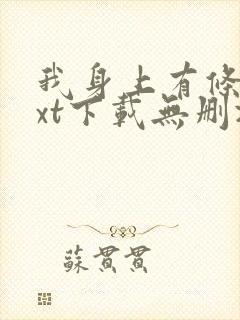 我身上有條
xt下載無刪
蘇貫貫